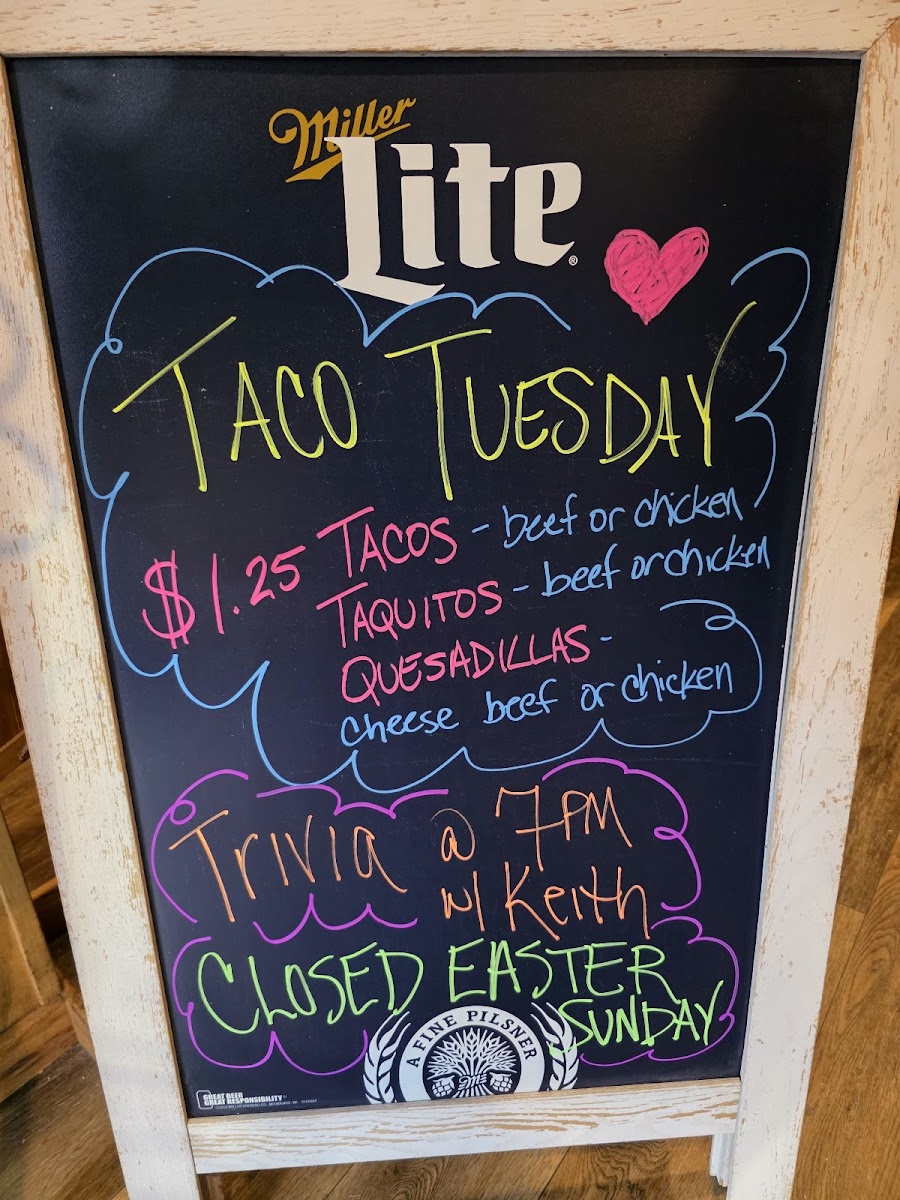 Miller
Lite
TACO TUESDAY
$1.25 TACOS - beef or chicken
TAQUITOS - beef or chicken
QUESADILLAS -
cheese beef or chicken
Trivia @ 7PM
w/ Keith
CLOSED EASTER
SUNDAY
A FINE PILSNER
GREAT BEER
GREAT RESPONSIBILITY